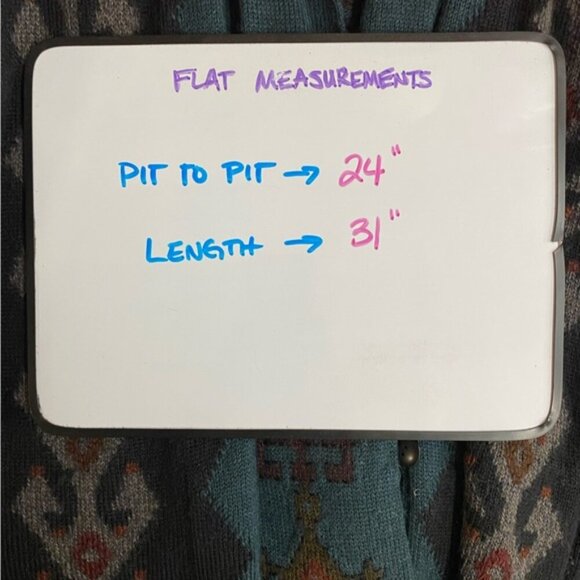 FLAT MEASUREMENTS
PIT TO PIT → 24"
LENGTH → 31"